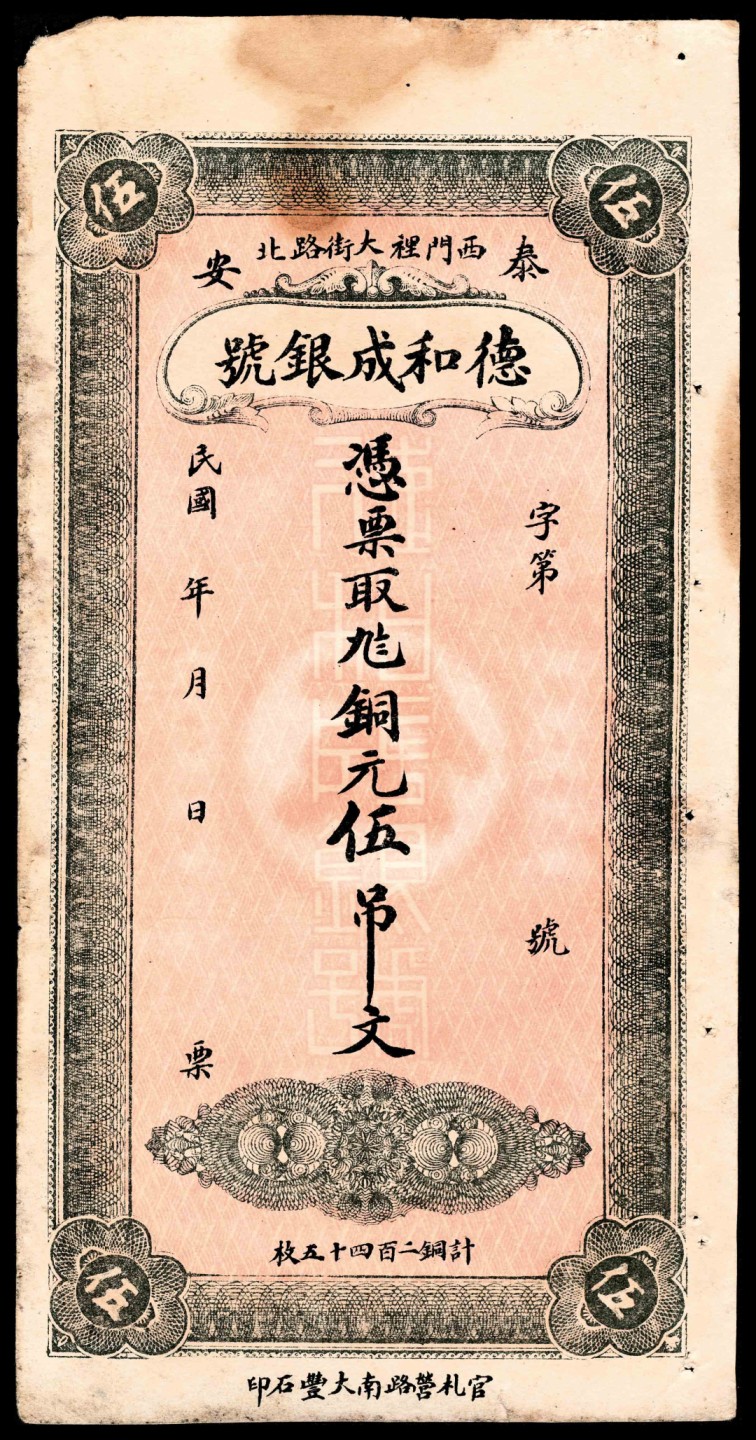 伍
伍
泰安
西門裡大街路北
德和成銀號
字第 號
憑票取 銅元伍吊文
民國 年 月 日 票
計銅二百四十五枚
伍
伍
官札營路南大豐石印